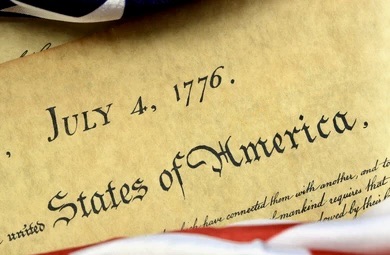 , JULY 4, 1776.
united States of America,
have connected them with another, and to
mankind requires that